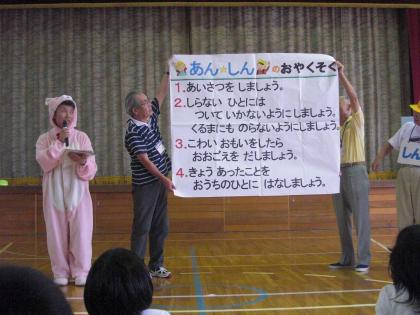 あん☆しんのおやくそく
1.あいさつを しましょう。
2.しらない ひとには
ついて いかないようにしましょう。
くるまにも のらないようにしましょう。
3.こわい おもいをしたら
おおごえを だしましょう。
4.きょう あったことを
おうちのひとに はなしましょう。
しん